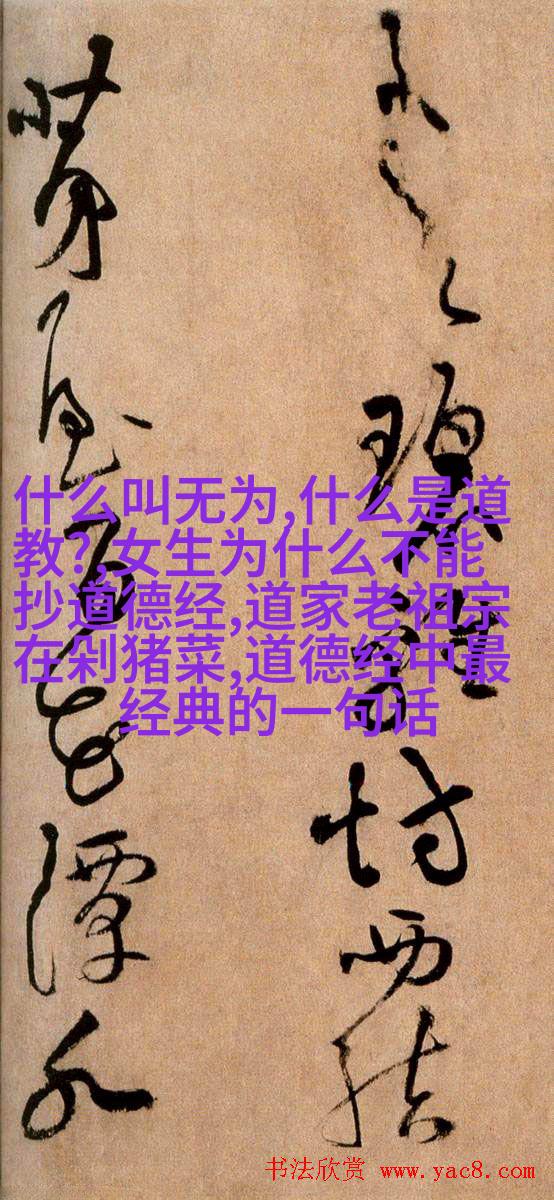 碧雞坊西結
茅屋百花潭水
什么叫无为,什么是道
教?,女生为什么不能
抄道德经,道家老祖宗
在剁猪菜,道德经中最
经典的一句话
书法欣赏 www.yac8.com